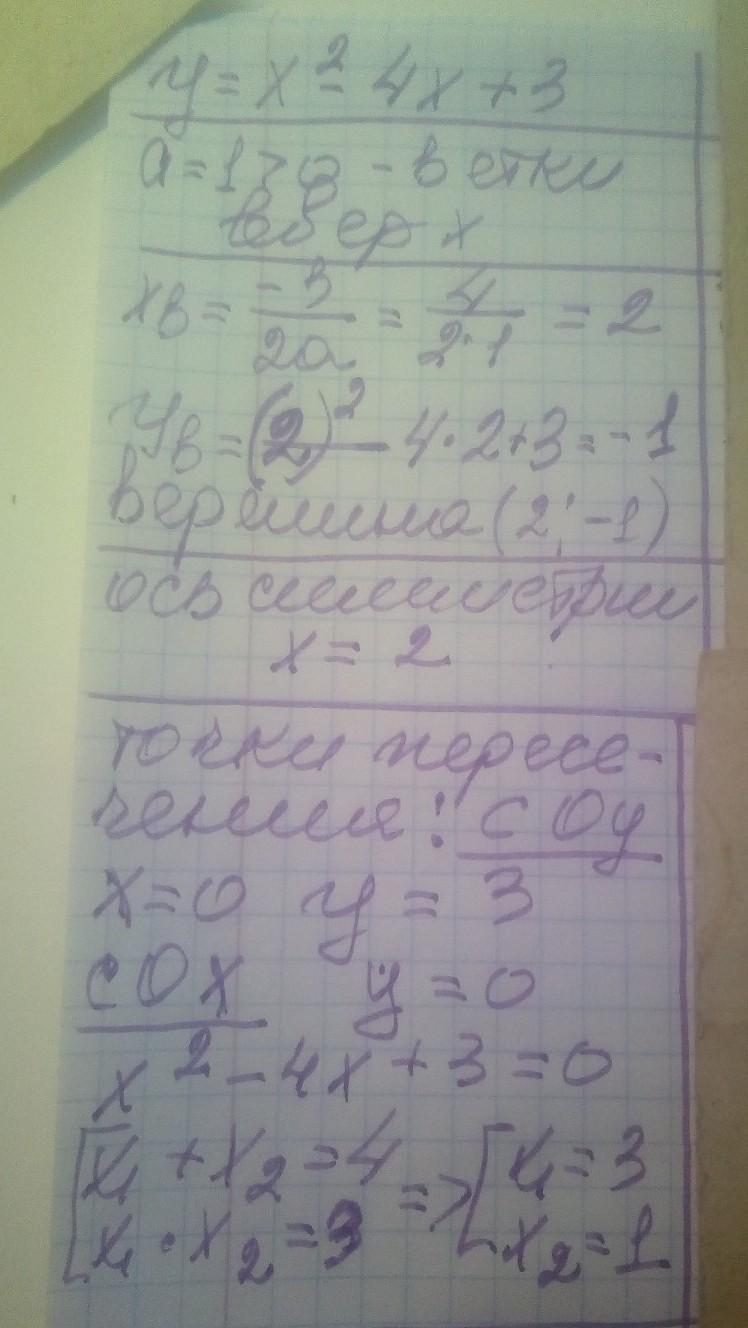 y = x² - 4x + 3
a = 1 > 0 - ветки
вверх
xв = -в/2a = 4/2·1 = 2
yв = (2)² - 4·2+3 = -1
вершина (2; -1)
ось симметрии
x = 2
точки пересе-
чения: с Oy
x = 0 y = 3
с Ox y = 0
x² - 4x + 3 = 0
[x₁ + x₂ = 4 => [x₁ = 3
x₁ · x₂ = 3 x₂ = 1